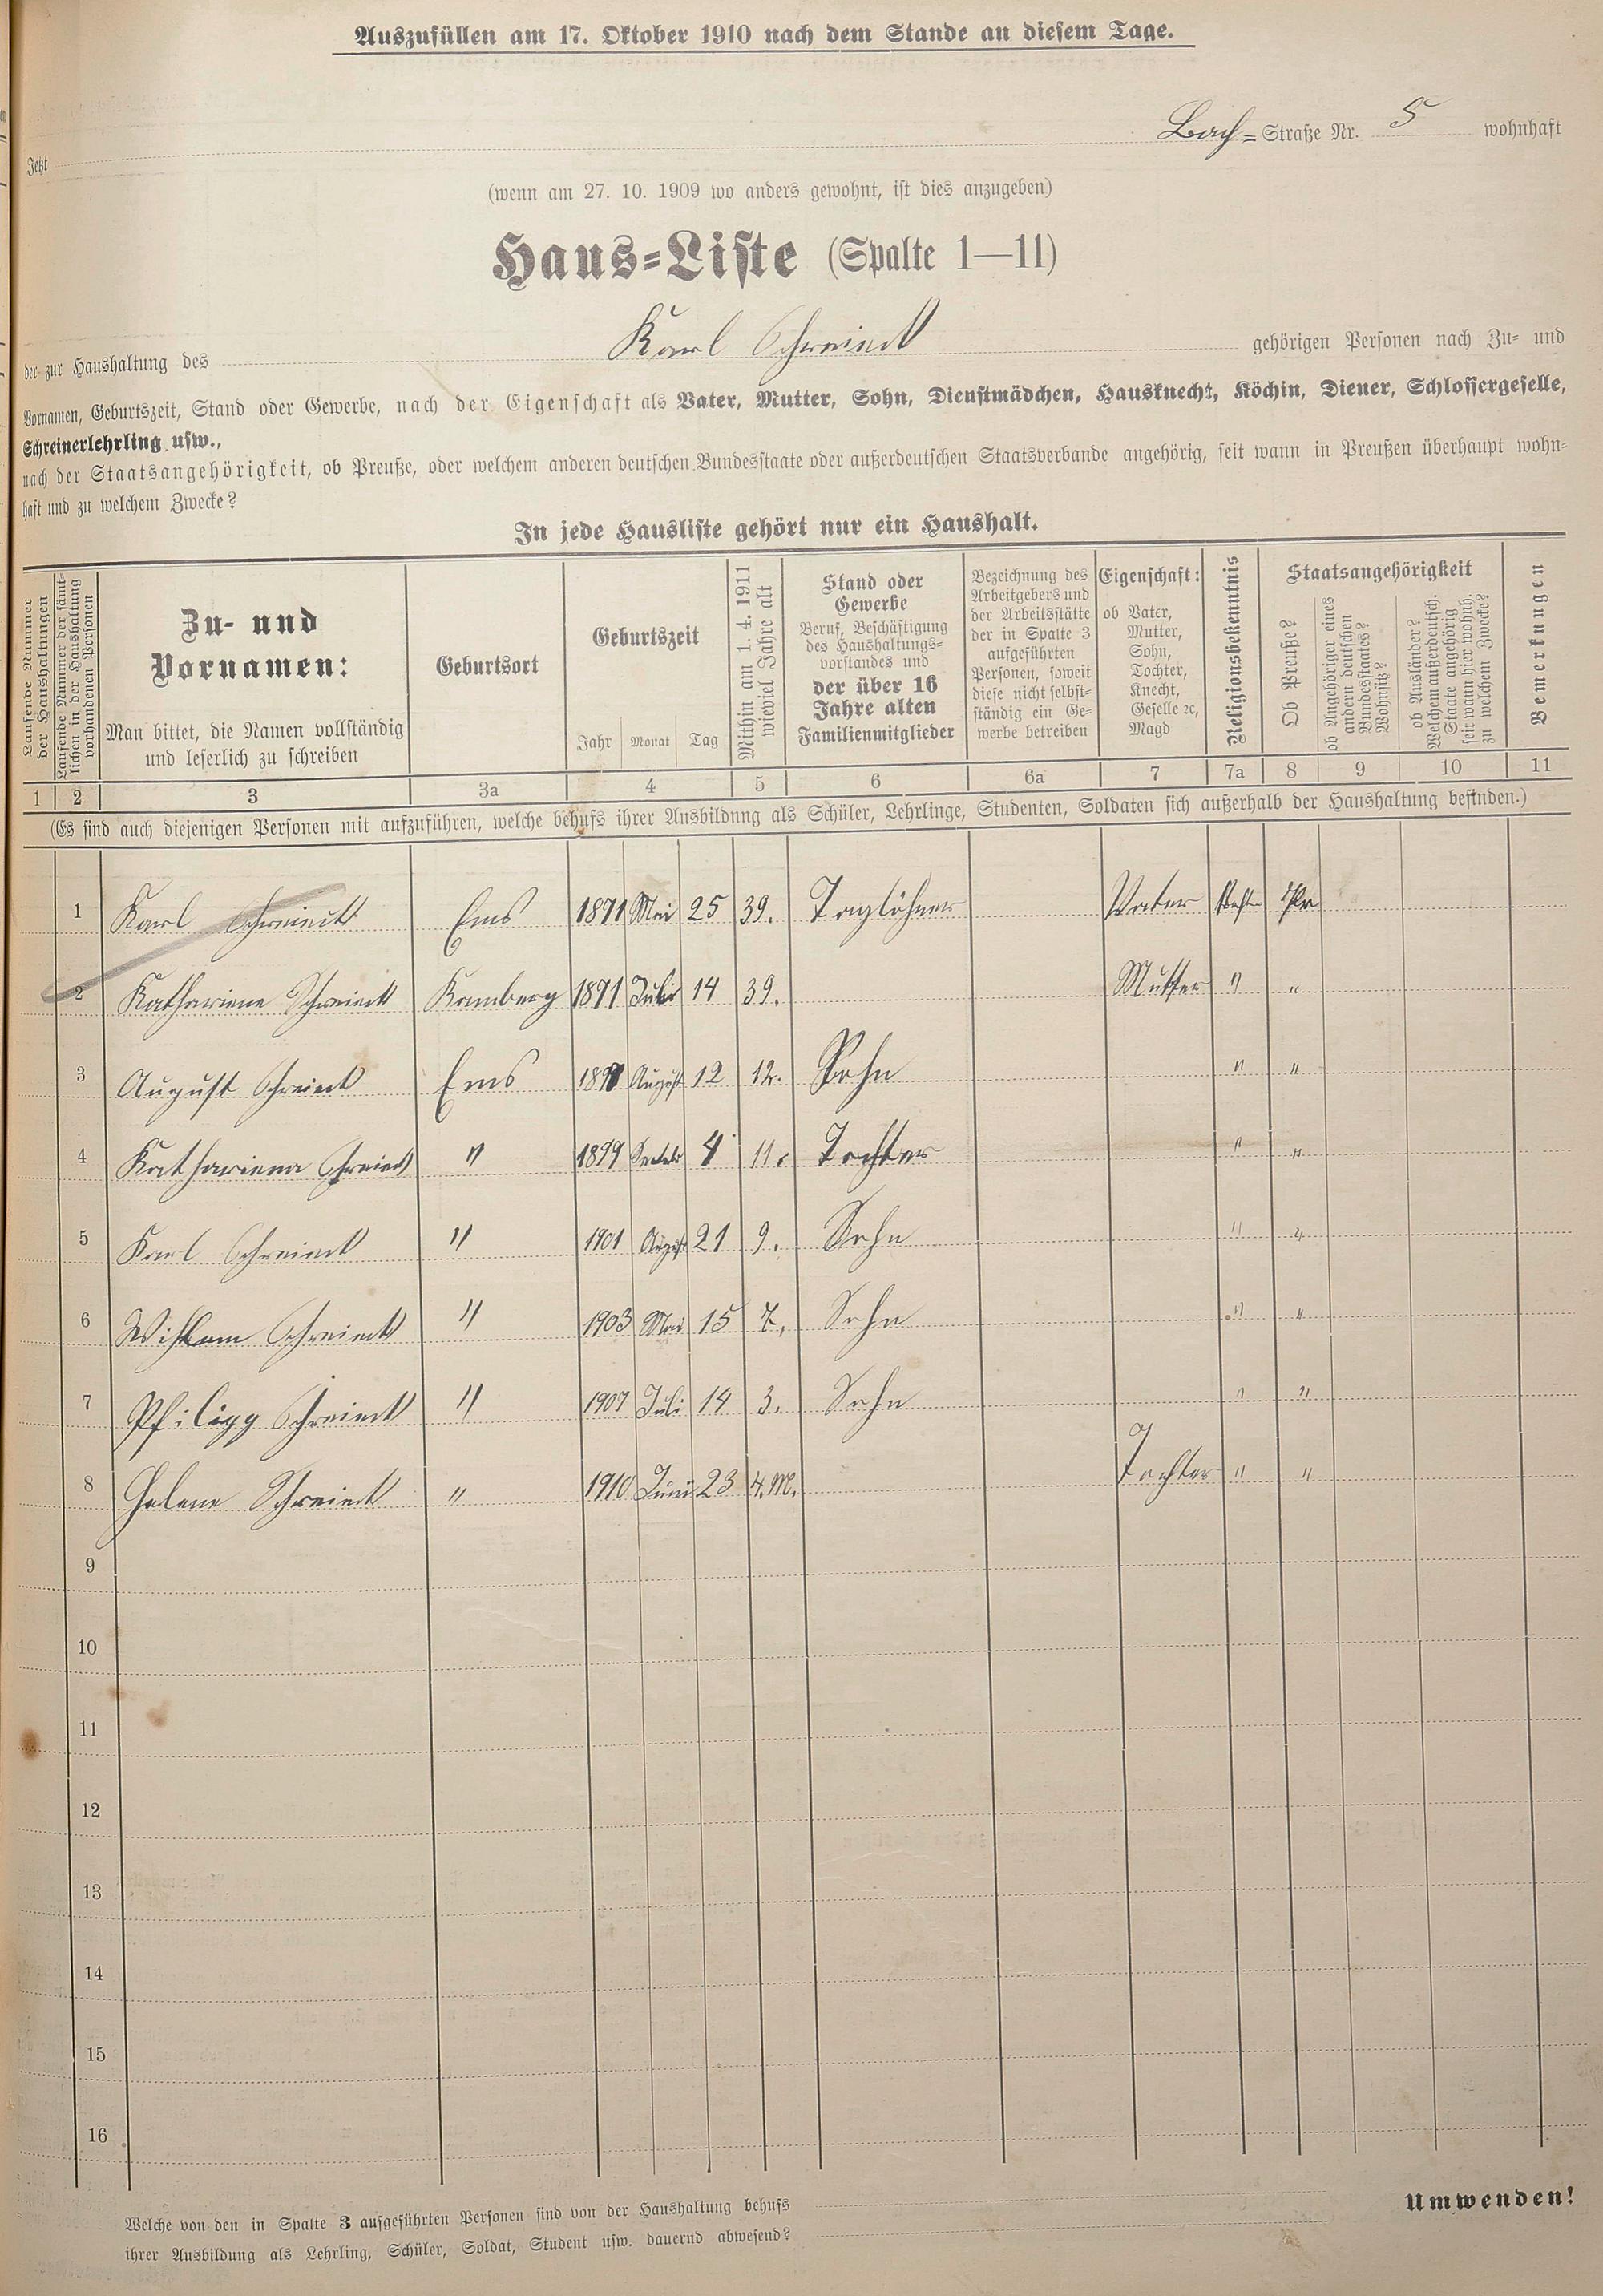 Auszufüllen am 17. Oktober 1910 nach dem Stande an diesem Tage.
Jetzt Bach-Straße Nr. 5 wohnhaft
(wenn am 27. 10. 1909 wo anders gewohnt, ist dies anzugeben)
Haus-Liste (Spalte 1—11)
der zur Haushaltung des Karl Schweinett gehörigen Personen nach Zu- und
Vornamen, Geburtszeit, Stand oder Gewerbe, nach der Eigenschaft als Vater, Mutter, Sohn, Dienstmädchen, Hausknecht, Köchin, Diener, Schlossergeselle,
Schreinerlehrling usw.,
nach der Staatsangehörigkeit, ob Preuße, oder welchem anderen deutschen Bundesstaate oder außerdeutschen Staatsverbande angehörig, seit wann in Preußen überhaupt wohn-
haft und zu welchem Zwecke?
In jede Hausliste gehört nur ein Haushalt.
Laufende Nummer der Haushaltungen
Laufende Nummer der sämt-
lichen in der Haushaltung
vorhandenen Personen
Zu- und
Vornamen:
Man bittet, die Namen vollständig
und leserlich zu schreiben
Geburtsort
Geburtszeit
Jahr Monat Tag
Mithin am 1. 4. 1911
wieviel Jahre alt
Stand oder
Gewerbe
Beruf, Beschäftigung
des Haushaltungs-
vorstandes und
der über 16
Jahre alten
Familienmitglieder
Bezeichnung des
Arbeitgebers und
der Arbeitsstätte
der in Spalte 3
aufgeführten
Personen, soweit
diese nicht selbst-
ständig ein Ge-
werbe betreiben
Eigenschaft:
ob Vater,
Mutter,
Sohn,
Tochter,
Knecht,
Geselle ꝛc,
Magd
Religionsbekenntnis
Staatsangehörigkeit
Ob Preuße?
ob Angehöriger eines
andern deutschen
Bundesstaates?
Wohnsitz?
ob Ausländer?
Welchem außerdeutsch.
Staate angehörig
seit wann hier wohnh.
zu welchem Zwecke?
Bemerkungen
1 2 3 3a 4 5 6 6a 7 7a 8 9 10 11
(Es sind auch diejenigen Personen mit aufzuführen, welche behufs ihrer Ausbildung als Schüler, Lehrlinge, Studenten, Soldaten sich außerhalb der Haushaltung befinden.)
1 Karl Ems 1871 Mai 25 39. Taglöhner Vater Pr
2 Kathariene Kamberg 1871 Juli 14 39. Mutter " "
3 August Ems August 12 12. Sohn " "
4 Kathariena " 1899 4 11. Tochter " "
5 Karl " 1901 August 21 9. Sohn " "
6 " 1903 Mai 15 7. Sohn " "
7 Philipp " 1907 Juli 14 3. Sohn " "
8 Helene " 1910 Juni 23 4. M. Tochter " "
9
10
11
12
13
14
15
16
Welche von den in Spalte 3 aufgeführten Personen sind von der Haushaltung behufs
ihrer Ausbildung als Lehrling, Schüler, Soldat, Student usw. dauernd abwesend?
Umwenden!